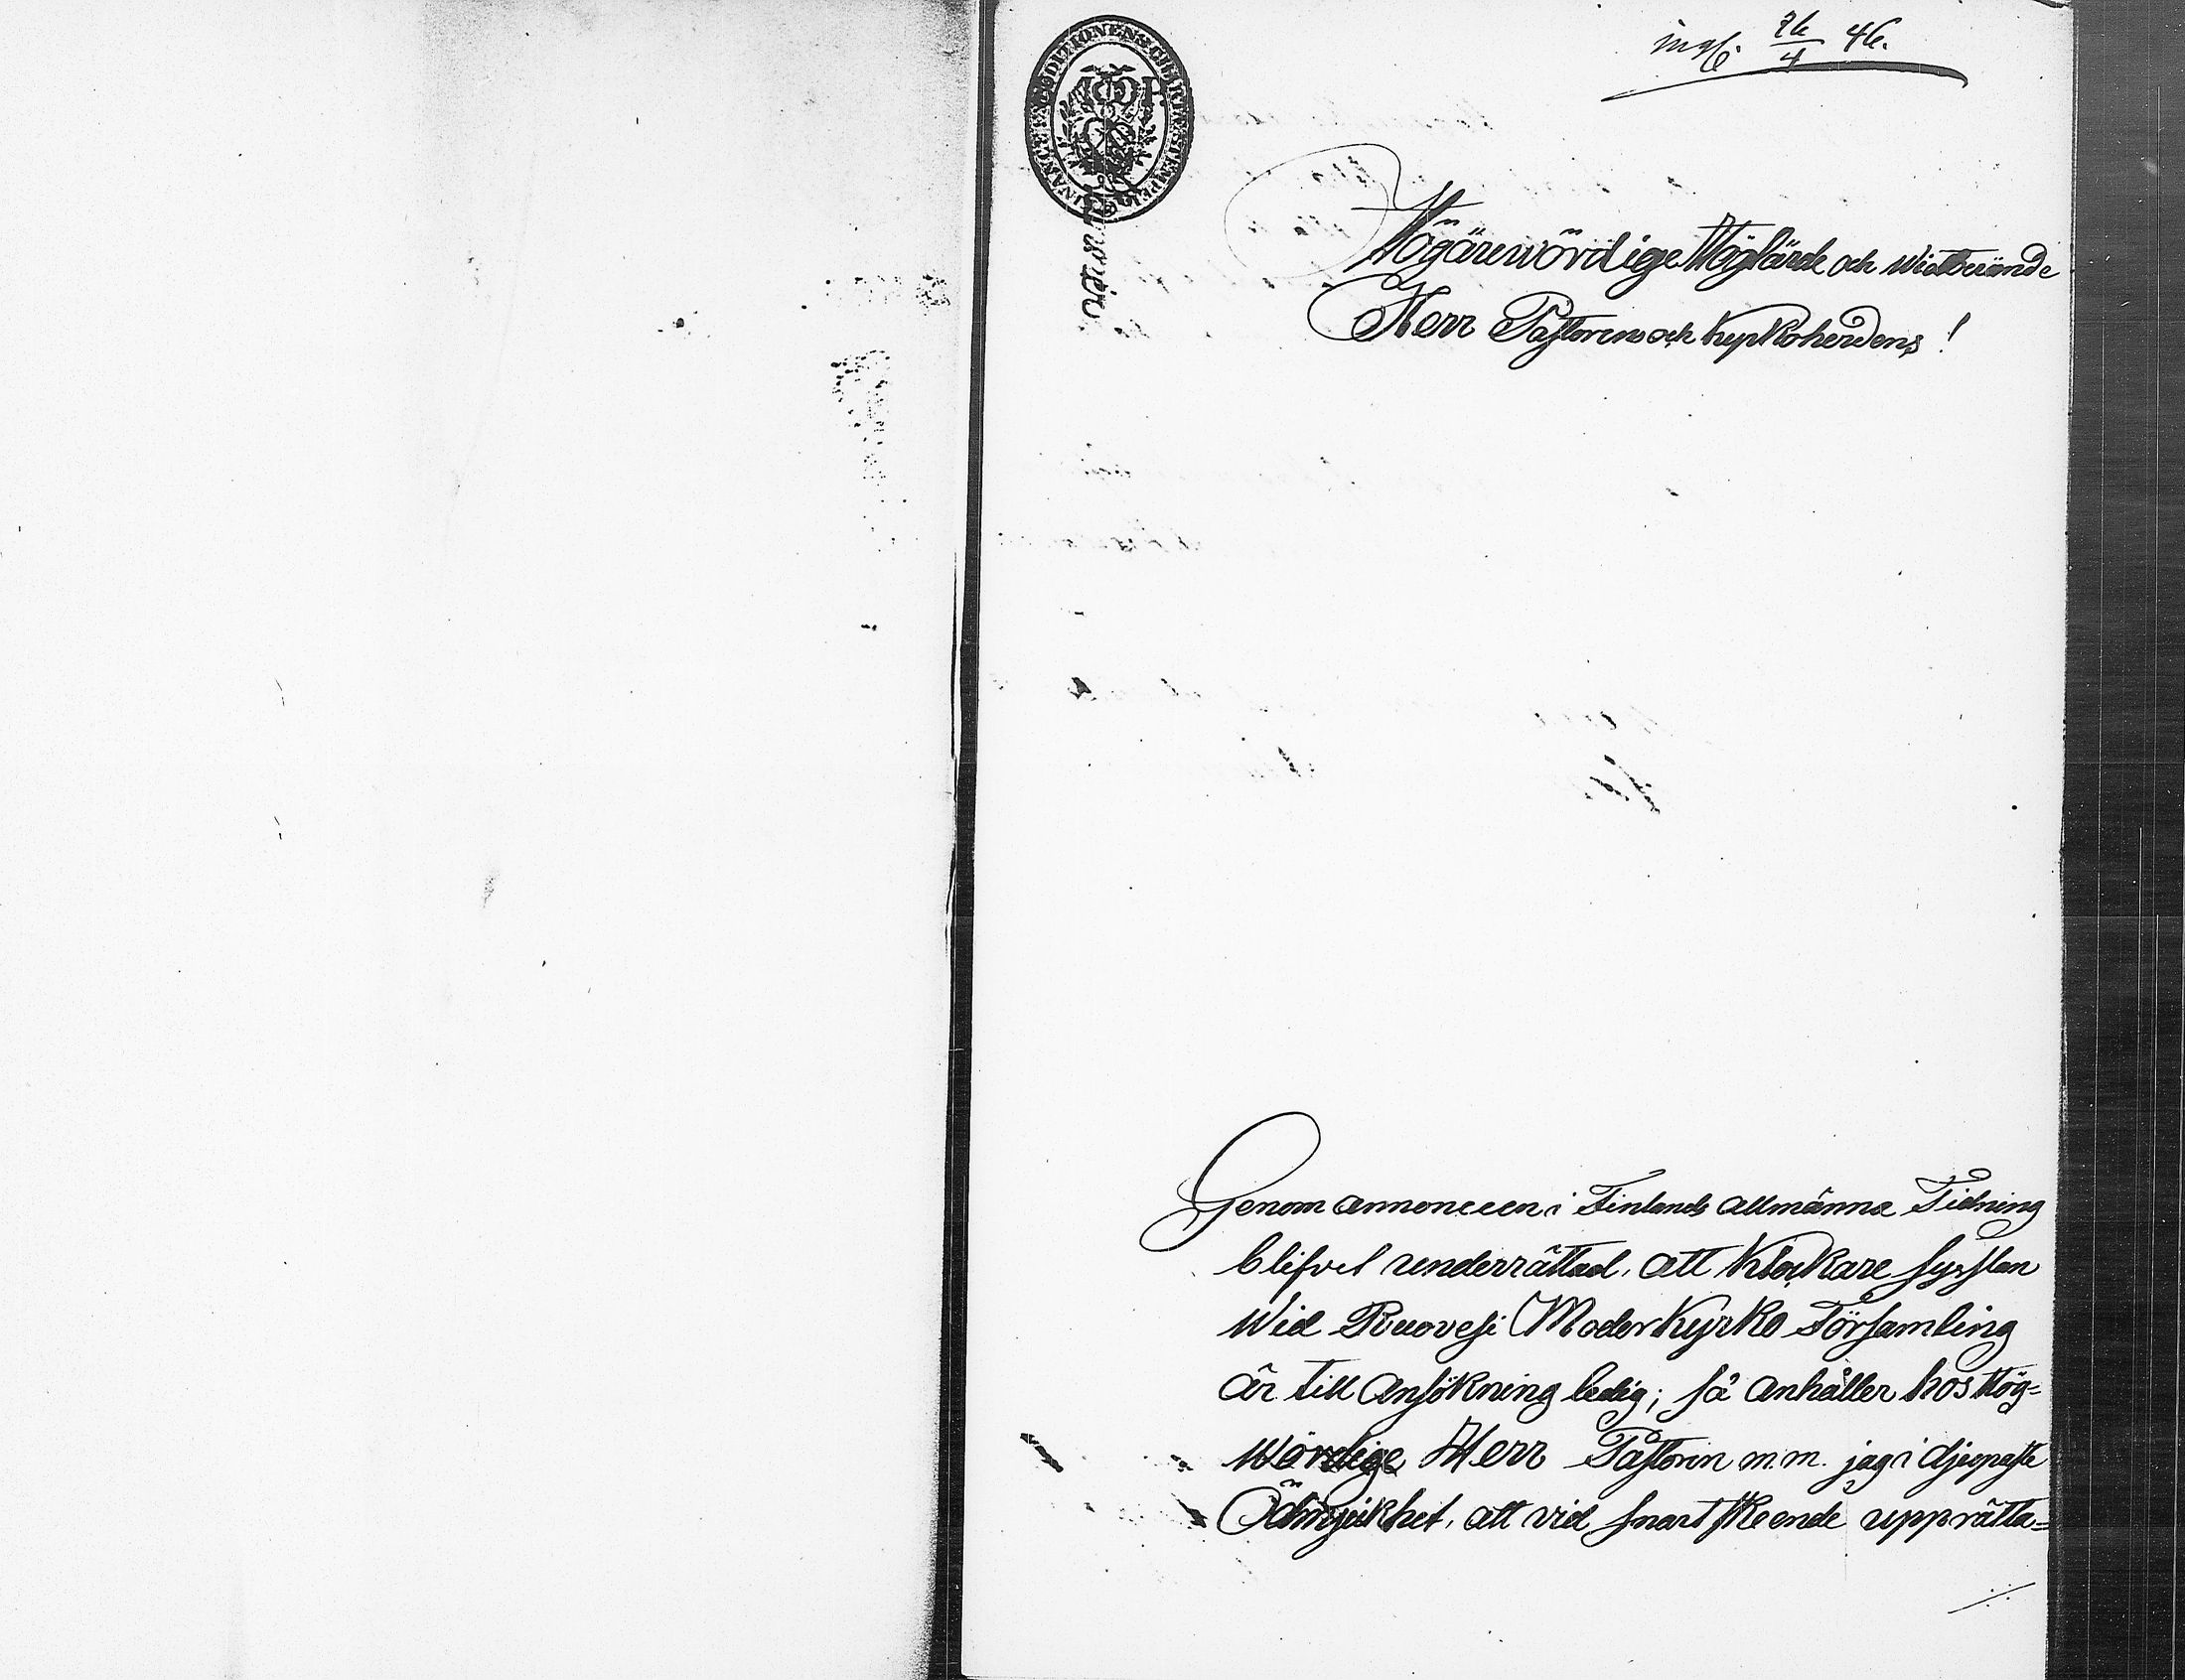 ingf. 26/4 46.
FINANCE EXPEDITIONENS CHARTÆ STEMPEL
Högärewördige Höglärde och widtberömde
Herr Pastoren och Kyrkoherdens!
Genom annoncen i Finlands allmänna Tidning
blifvet underrättad, att Klockare sysslan
wid Ruovesi Moder Kyrko Församling
är till ansökning ledig; så anhåller hos Hög=
wördige Herr Pastorin m.m. jag i djupaste
Ödmjukhet, att vid snart skeende upprätta=